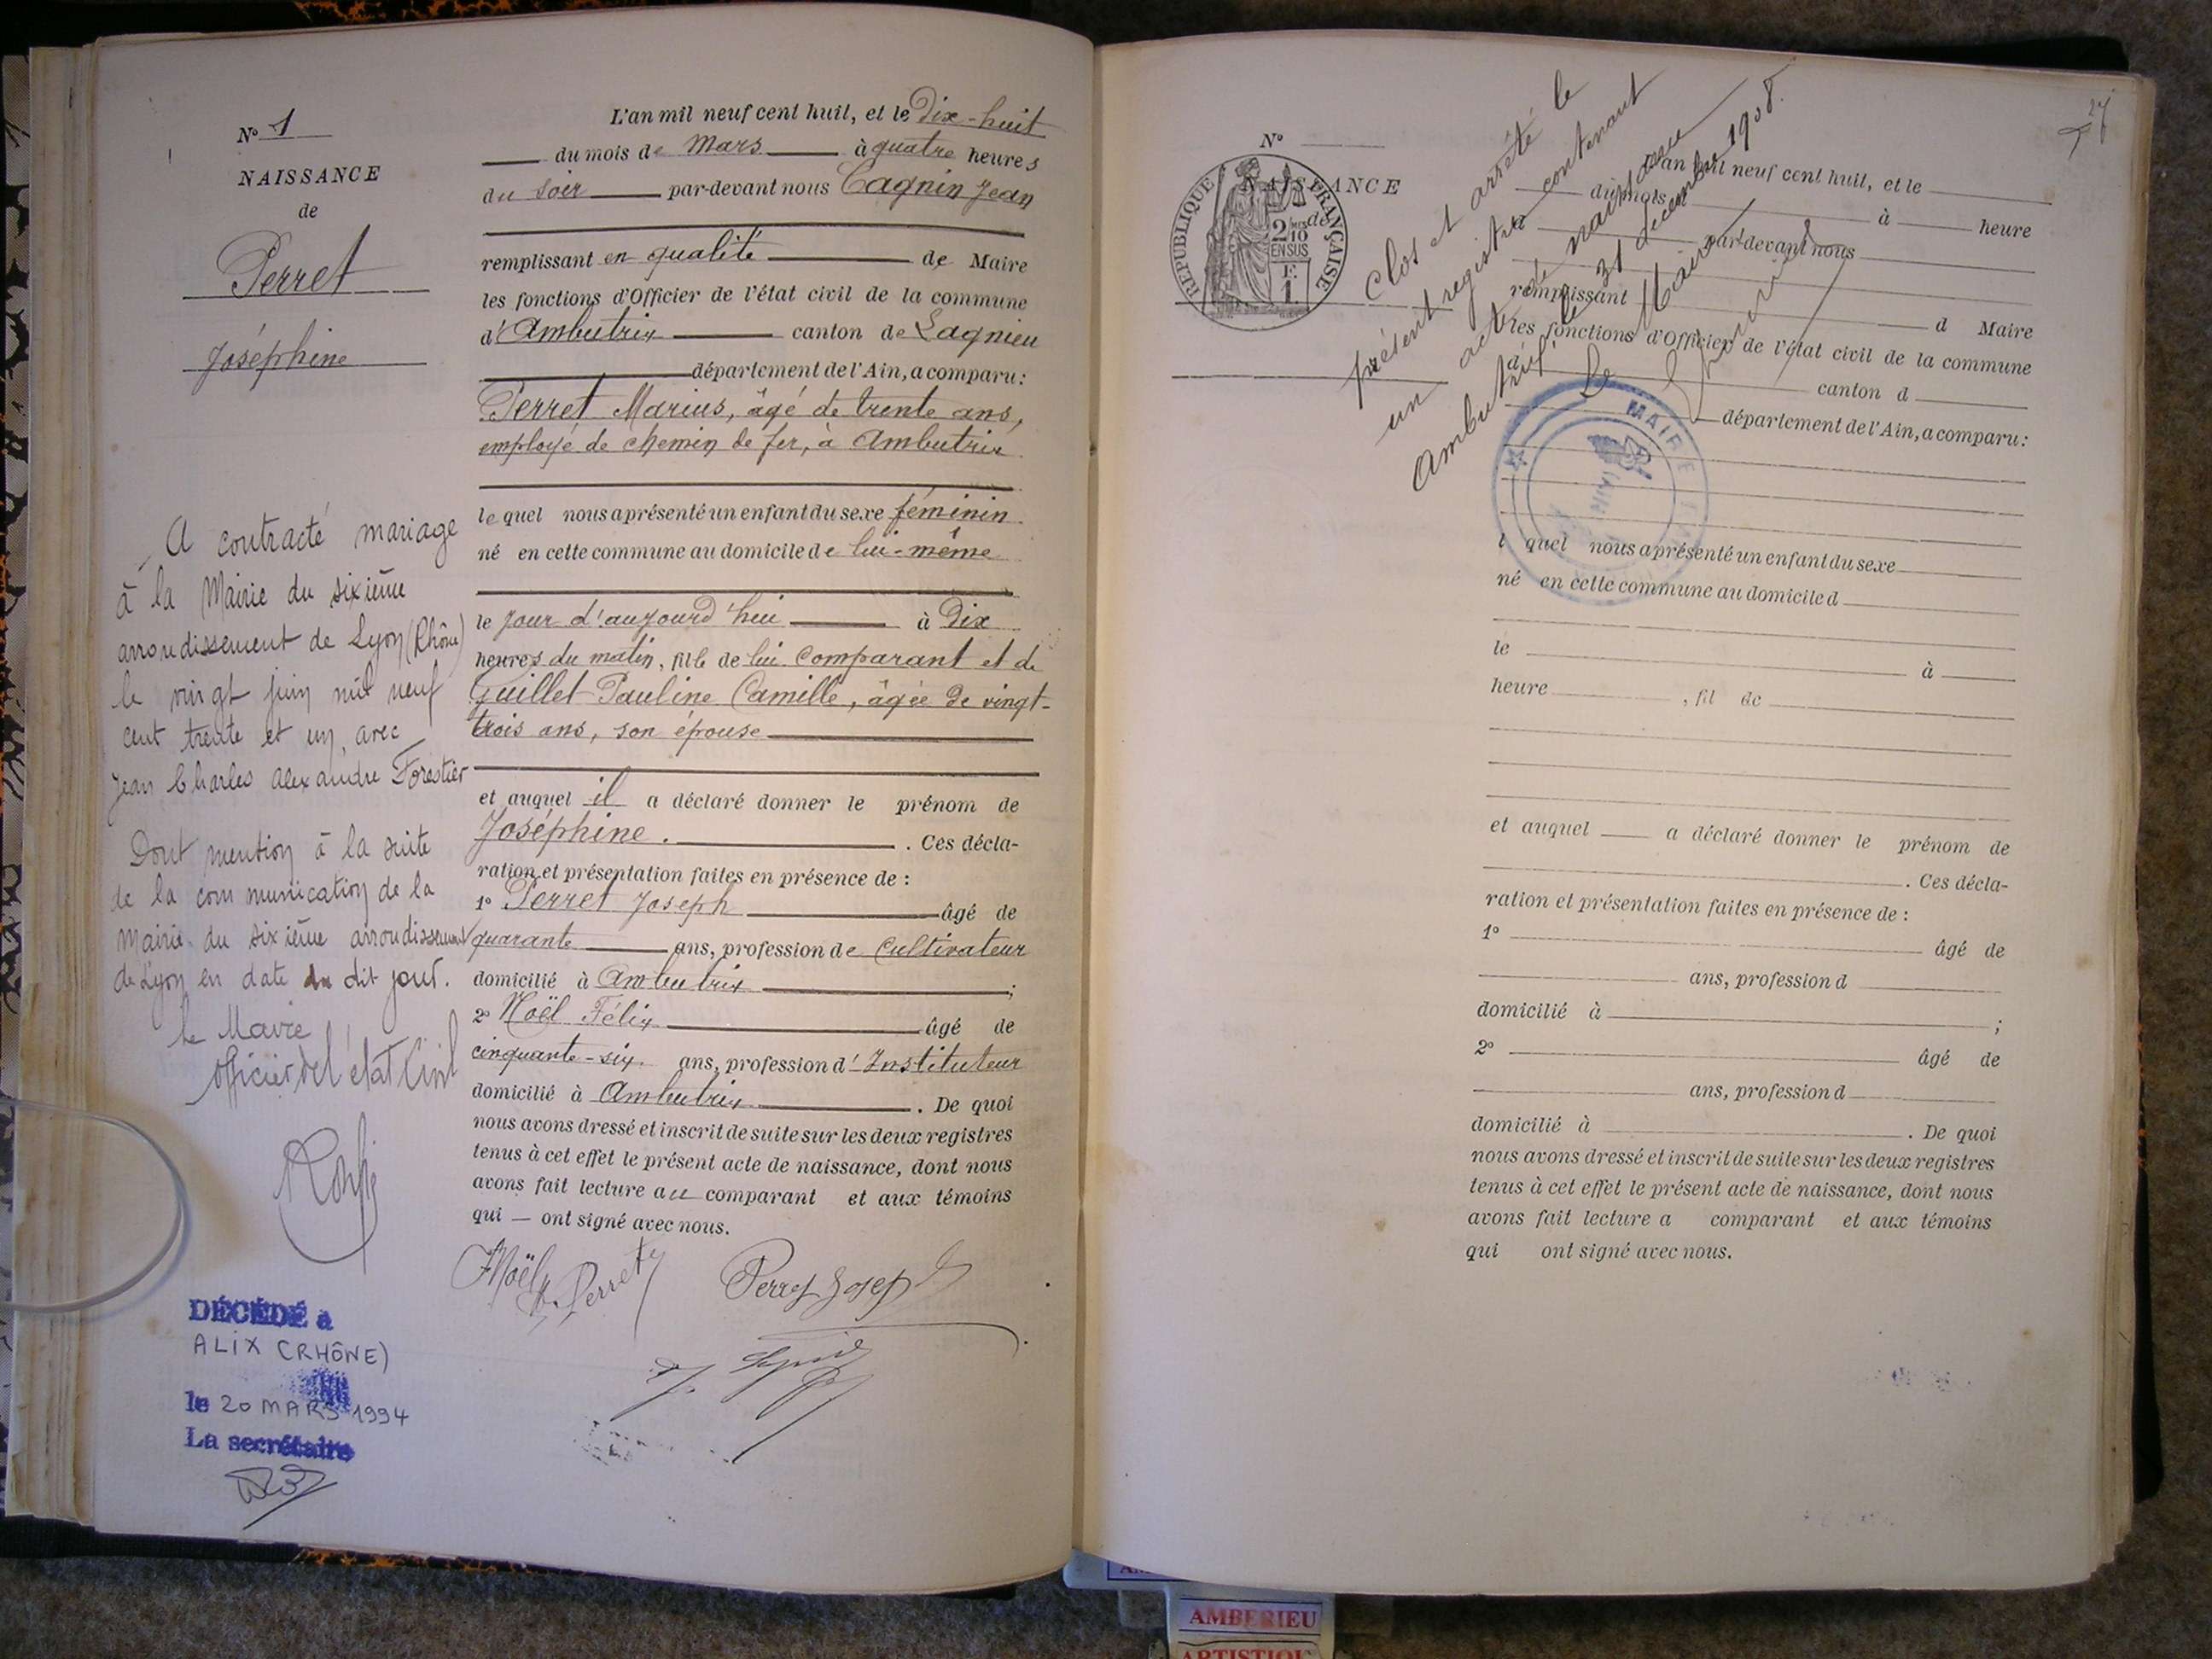 N° 1
NAISSANCE
de
Perret
Joséphine
A contracté mariage
à la Mairie du sixième
arrondissement de Lyon (Rhône)
le vingt juin mil neuf
cent trente et un, avec
Jean Charles Alexandre Forestier
Dont mention à la suite
de la communication de la
Mairie du sixième arrondissement
de Lyon en date du dit jour.
Le Maire
officier de l'état Civil
DÉCÉDÉ a
ALIX (RHÔNE)
le 20 MARS 1994
La secrétaire
L'an mil neuf cent huit, et le Dix-huit
du mois de Mars à quatre heures
du soir par-devant nous Cagnin Jean
remplissant en qualité de Maire
les fonctions d'Officier de l'état civil de la commune
d'Ambutrix canton de Lagnieu
département de l'Ain, a comparu:
Perret Marius, âgé de trente ans,
employé de chemin de fer, à Ambutrix
le quel nous a présenté un enfant du sexe féminin
né en cette commune au domicile de lui-même
le jour d'aujourd'hui à Dix
heures du matin, fille de lui comparant et de
Guillet Pauline Camille, âgée de vingt-
trois ans, son épouse
et auquel il a déclaré donner le prénom de
Joséphine. . Ces décla-
ration et présentation faites en présence de :
1° Perret Joseph âgé de
quarante ans, profession de Cultivateur
domicilié à Ambutrix ;
2° Noël Félix âgé de
cinquante-six ans, profession d'Instituteur
domicilié à Ambutrix . De quoi
nous avons dressé et inscrit de suite sur les deux registres
tenus à cet effet le présent acte de naissance, dont nous
avons fait lecture au comparant et aux témoins
qui — ont signé avec nous.
Noël
Perret
Perret Joseph
27
N°
NAISSANCE
de
RÉPUBLIQUE FRANÇAISE
2/10
EN SUS
F.
1.
Clos et arrêté le
présent registre contenant
un acte de naissance
Ambutrix le 31 décembre 1908.
Le Maire
MAIRIE
AIN
L'an mil neuf cent huit, et le
du mois à heure
par-devant nous
remplissant d Maire
les fonctions d'Officier de l'état civil de la commune
d canton d
département de l'Ain, a comparu:
l quel nous a présenté un enfant du sexe
né en cette commune au domicile d
le à
heure , fil de
et auquel a déclaré donner le prénom de
. Ces décla-
ration et présentation faites en présence de :
1° âgé de
ans, profession d
domicilié à ;
2° âgé de
ans, profession d
domicilié à . De quoi
nous avons dressé et inscrit de suite sur les deux registres
tenus à cet effet le présent acte de naissance, dont nous
avons fait lecture a comparant et aux témoins
qui ont signé avec nous.
AMBERIEU